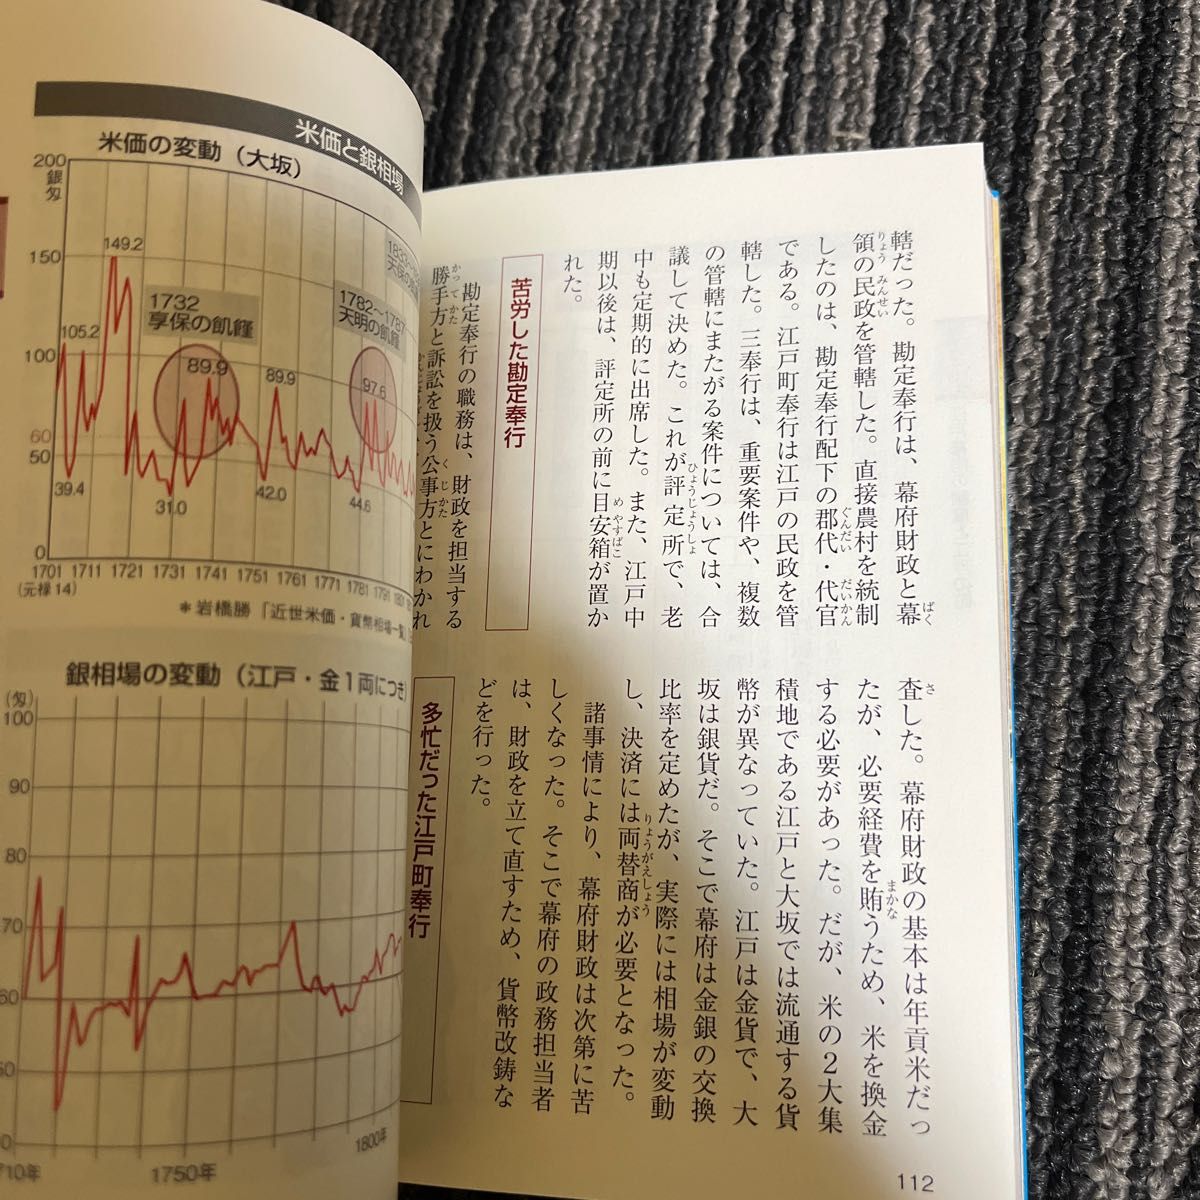 轄だった。勘定奉行は、幕府財政と幕
領の民政を管轄した。直接農村を統制
したのは、勘定奉行配下の郡代・代官
である。江戸町奉行は江戸の民政を管
轄した。三奉行は、重要案件や、複数
の管轄にまたがる案件については、合
議して決めた。これが評定所で、老
中も定期的に出席した。また、江戸中
期以後は、評定所の前に目安箱が置か
れた。
苦労した勘定奉行
勘定奉行の職務は、財政を担当する
勝手方と訴訟を扱う公事方とにわかれ
査した。幕府財政の基本は年貢米だっ
たが、必要経費を賄うため、米を換金
する必要があった。だが、米の2大集
積地である江戸と大坂では流通する貨
幣が異なっていた。江戸は金貨で、大
坂は銀貨だ。そこで幕府は金銀の交換
比率を定めたが、実際には相場が変動
し、決済には両替商が必要となった。
諸事情により、幕府財政は次第に苦
しくなった。そこで幕府の政務担当者
は、財政を立て直すため、貨幣改鋳な
どを行った。
多忙だった江戸町奉行
112
米価と銀相場
米価の変動（大坂）
200
銀匁
150
100
60
50
0
149.2
105.2
39.4
1732
享保の飢饉
89.9
31.0
89.9
42.0
1782〜1787
天明の飢饉
97.6
44.6
1701 1711 1721 1731 1741 1751 1761 1771 1781 1791
(元禄14)
＊岩橋勝「近世米価・貨幣相場一覧」
銀相場の変動（江戸・金1両につき）
(匁)
100
90
80
70
60
1750年
1800年